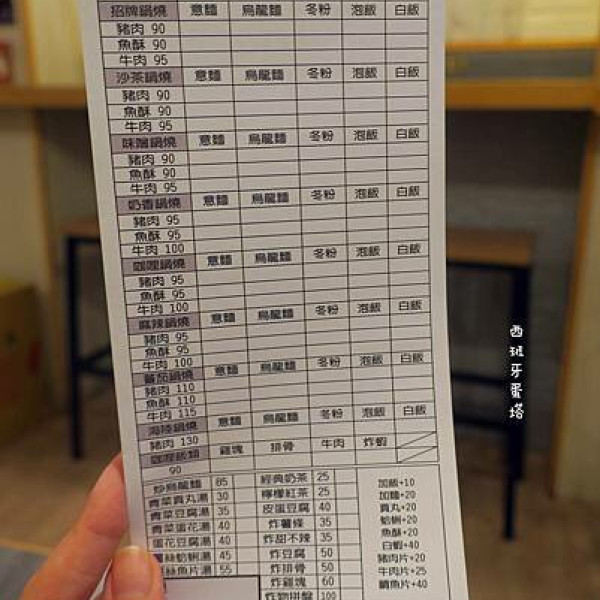 招牌鍋燒 意麵 烏龍麵 冬粉 泡飯 白飯
豬肉 90
魚酥 90
牛肉 95
沙茶鍋燒 意麵 烏龍麵 冬粉 泡飯 白飯
豬肉 90
魚酥 90
牛肉 95
味噌鍋燒 意麵 烏龍麵 冬粉 泡飯 白飯
豬肉 90
魚酥 90
牛肉 95
奶香鍋燒 意麵 烏龍麵 冬粉 泡飯 白飯
豬肉 95
魚酥 95
牛肉 100
咖哩鍋燒 意麵 烏龍麵 冬粉 泡飯 白飯
豬肉 95
魚酥 95
牛肉 100
麻辣鍋燒 意麵 烏龍麵 冬粉 泡飯 白飯
豬肉 95
魚酥 95
牛肉 100
蕃茄鍋燒 意麵 烏龍麵 冬粉 泡飯 白飯
豬肉 110
魚酥 110
牛肉 115
海陸鍋燒 意麵 烏龍麵 冬粉 泡飯 白飯
豬肉 130
咖哩飯類 雞塊 排骨 牛肉 炸蝦
90
炒烏龍麵 85
青菜貢丸湯 30
青菜豆腐湯 35
青菜蛋花湯 40
蛋花豆腐湯 40
絲蛤蜊湯 45
絲魚片湯 55
經典奶茶 25
檸檬紅茶 25
皮蛋豆腐 40
炸薯條 35
炸甜不辣 35
炸豆腐 50
炸排骨 50
炸雞塊 60
炸物拼盤 100
加飯+10
加麵+20
貢丸+20
蛤蜊+20
魚酥+20
白蝦+40
豬肉片+20
牛肉片+25
鯛魚片+40
西班牙蛋塔